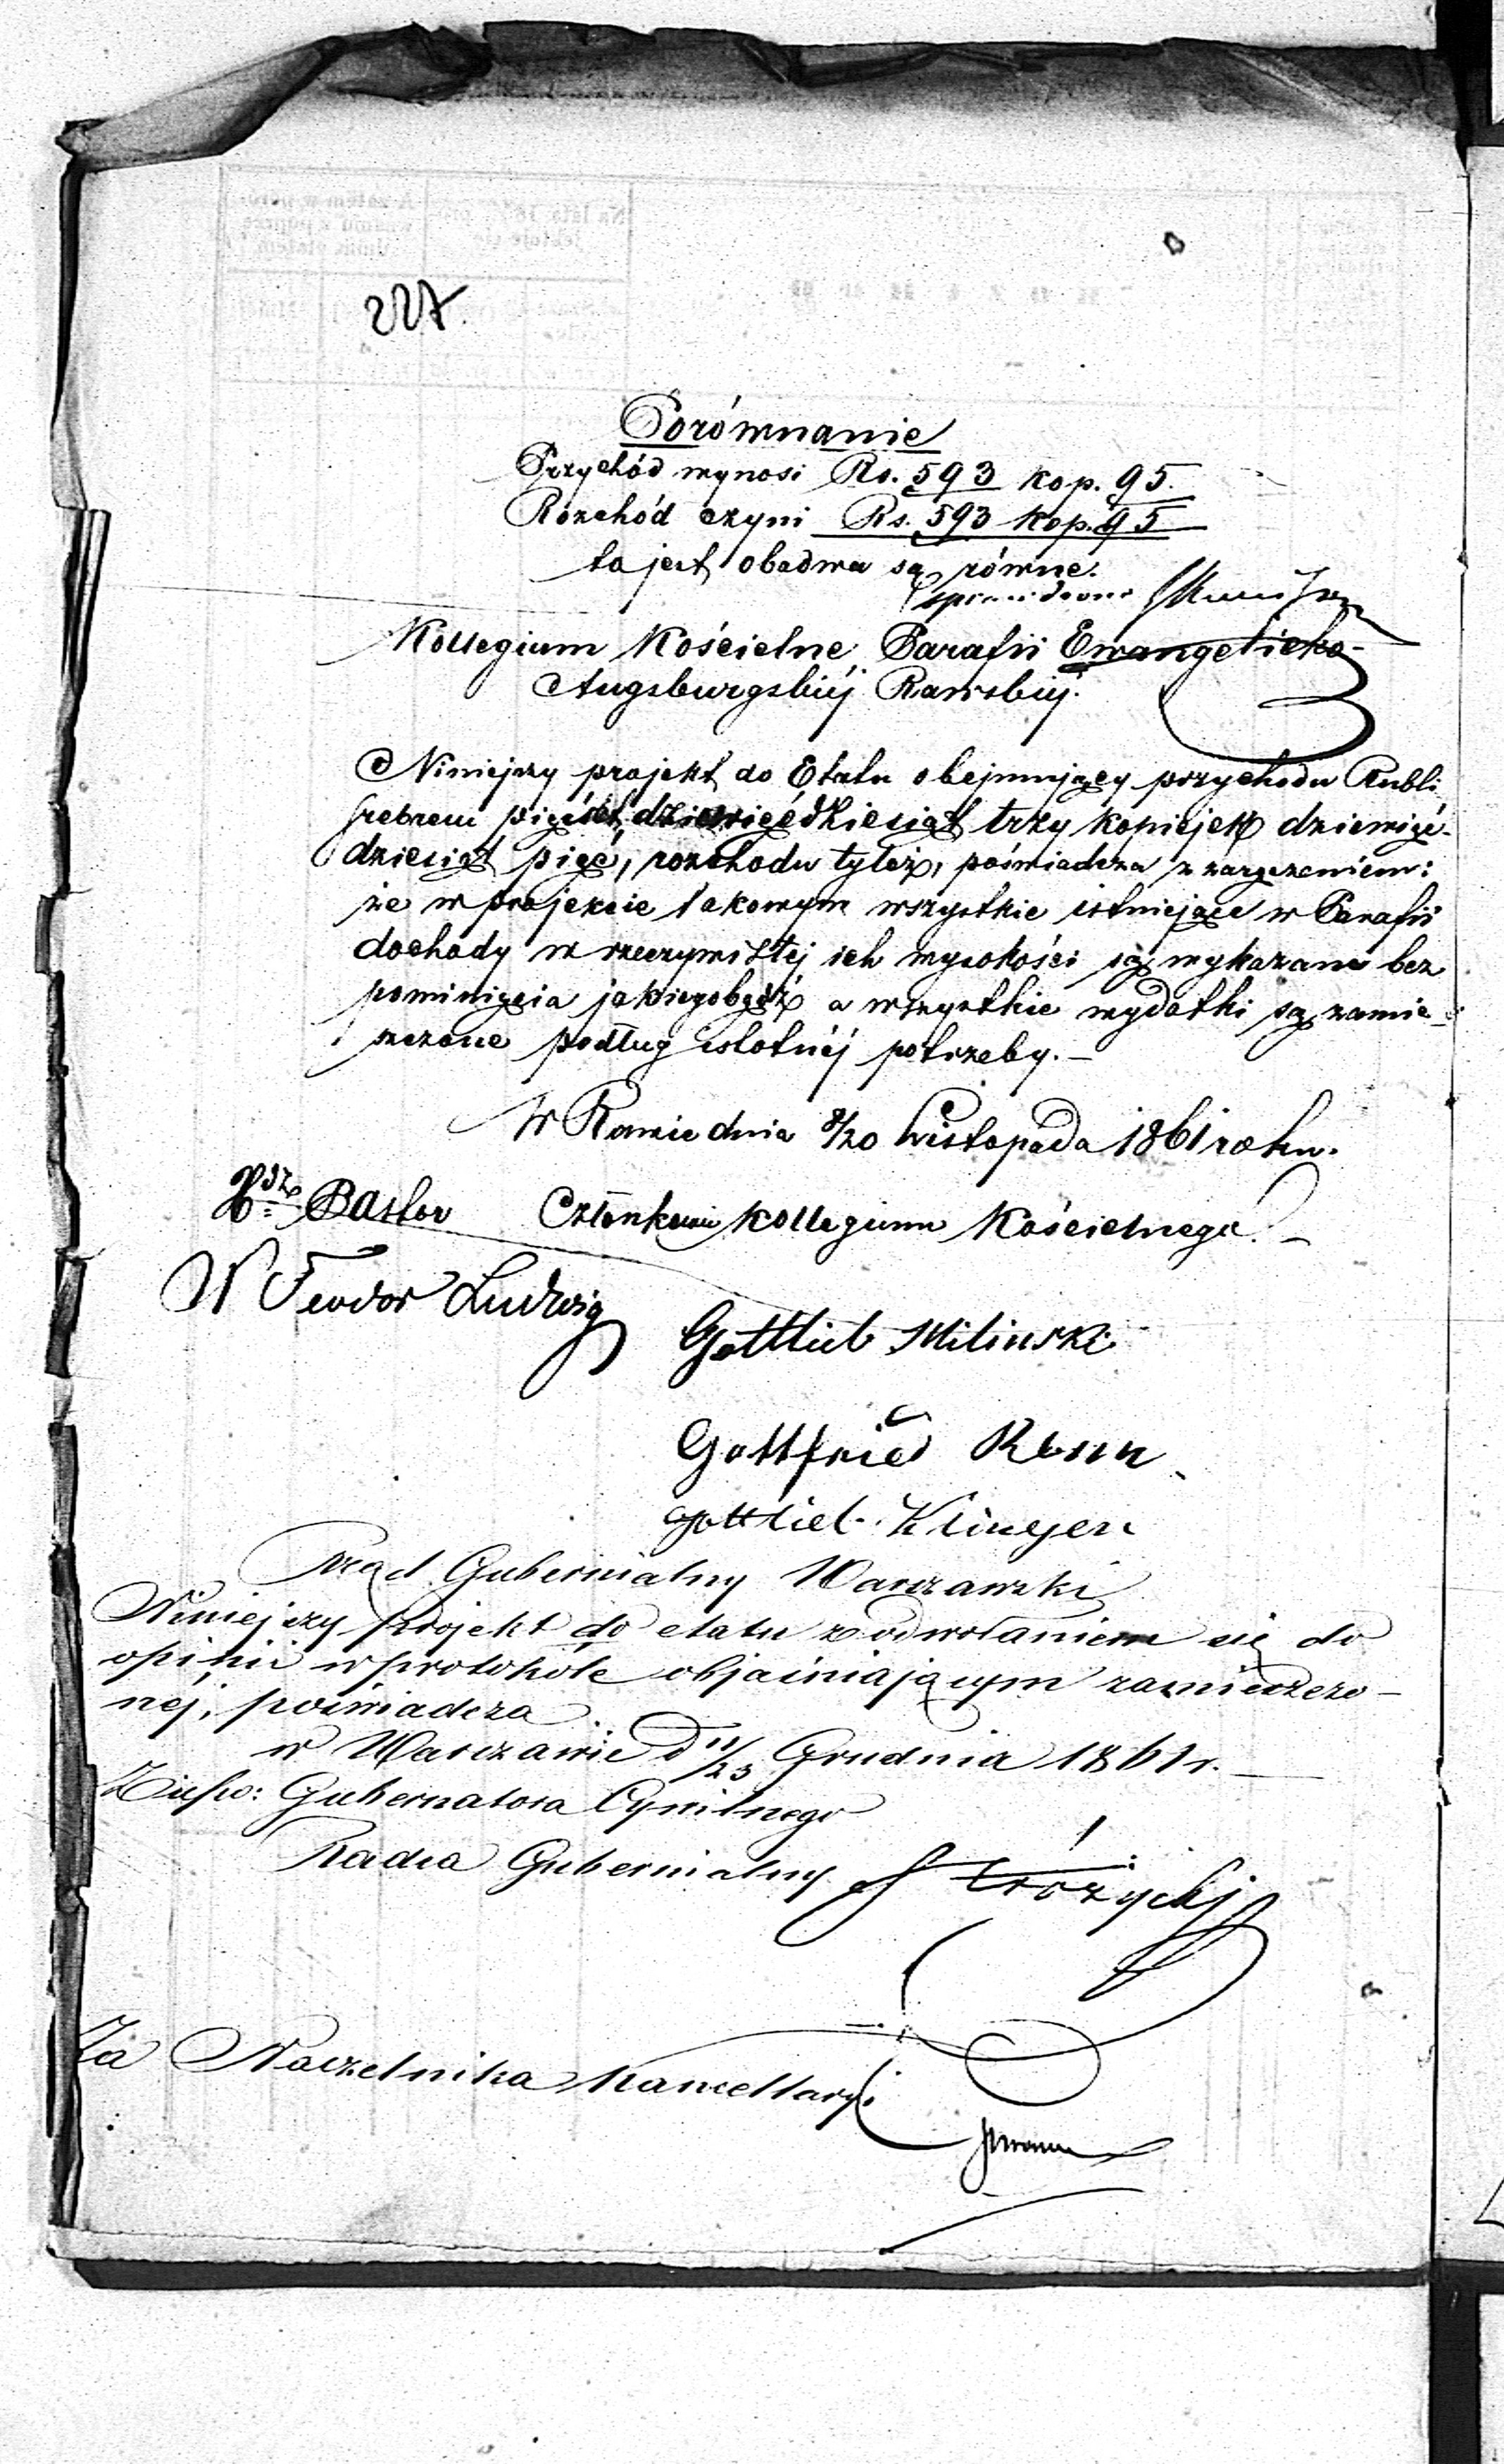 227.
Porównanie
Przychód wynosi Rs. 593 kop. 95.
Rozchód czyni Rs. 593 kop. 95
to jest obadwa są równe.
Kollegium Kościelne Parafii Ewangelicko-
Augsburgskiéj Rawskiéj.
Niniejszy projekt do Etatu obejmujący przychodu Rubli
srebrem pięćset dziewięćdziesiąt trzy kopiejek dziewięć-
dziesiąt pięć, rozchodu tyleż, poświadcza z zaręczeniem:
że w projekcie takowym wszystkie istniejące w Parafii
dochody w rzeczywistej ich wysokości są wykazane bez
pominięcia jakiegobądź a wszystkie wydatki są zamie-
szczone podług istotnéj potrzeby.—
W Rawie dnia 8/20 Listopada 1861 roku.
Xsdz Pastor Członkowie Kollegium Kościelnego.—
W Teodor Ludwig
Gottlieb Milinski
Gottfried Renn
Gottlieb Klinger
Rząd Gubernialny Warszawski
Niniejszy projekt do etatu z odwołaniem się do
opinii w protokóle objaśniającym zamieszczo-
néj, poświadcza
w Warszawie d 11/23 Grudnia 1861 r.—
Gubernatora Cywilnego
Radca Gubernialny
Za Naczelnika Kancellaryi